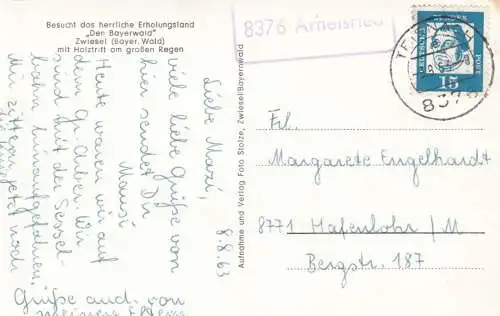 Besucht das herrliche Erholungsland
„Den Bayerwald"
Zwiesel (Bayer. Wald)
mit Holztrift am großen Regen
8376 Arnetsried
DEUTSCHE
POST
15
837
Aufnahme und Verlag Foto Stolze, Zwiesel/Bayerwald
8.8.63
Liebe Mazi,
viele liebe Grüße von
hier sendet Dir
Mausi
Heute waren wir auf
dem Gr. Arber. Wir
sind mit der Sessel-
bahn hinaufgefahren.
Mir zittern jetzt noch
Grüße auch von
meinen Eltern
Frl.
Margarete Engelhardt
8771 Hafenlohr / M
Bergstr. 187